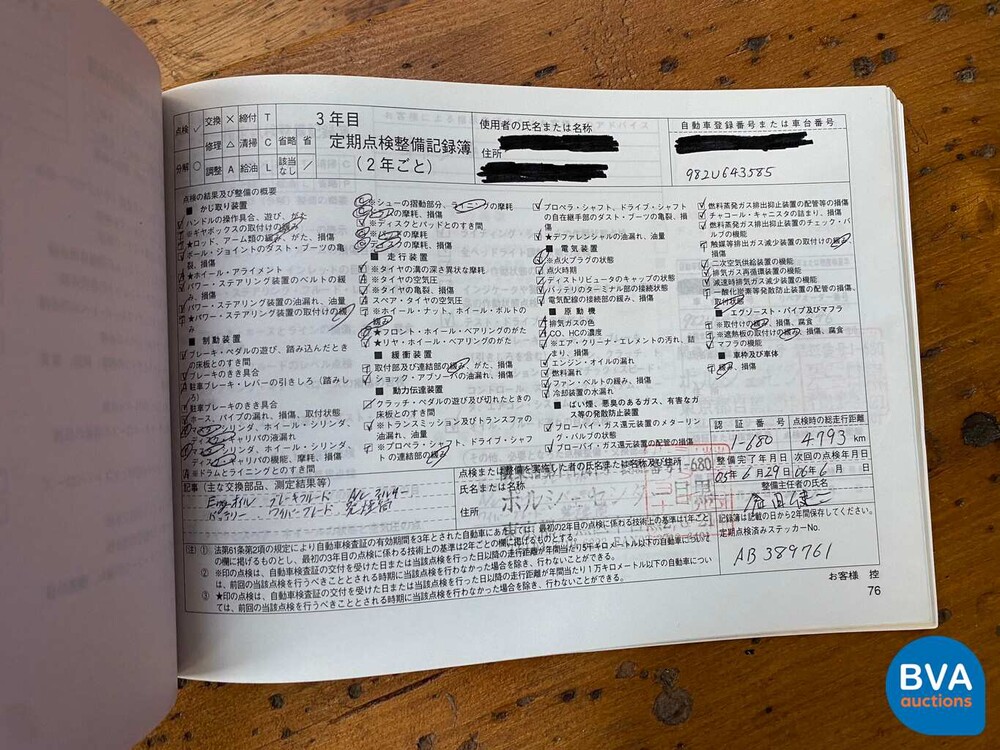 点検 ✓ 交換 × 締付 T
修理 △ 清掃 C 省略 省
分解 ○ 調整 A 給油 L 該当なし /
3年目
定期点検整備記録簿
(2年ごと)
使用者の氏名または名称
住所
自動車登録番号または車台番号
982U643585
点検の結果及び整備の概要
■ かじ取り装置
ハンドルの操作具合、遊び、がた
※ギヤボックスの取付けの緩み
★ロッド、アーム類の緩み、がた、損傷
ボール・ジョイントのダスト・ブーツの亀
裂、損傷
★ホイール・アライメント
パワー・ステアリング装置のベルトの緩
み、損傷
パワー・ステアリング装置の油漏れ、油量
★パワー・ステアリング装置の取付けの緩
み
■ 制動装置
ブレーキ・ペダルの遊び、踏み込んだとき
の床板とのすき間
ブレーキのきき具合
駐車ブレーキ・レバーの引きしろ(踏みし
ろ)
駐車ブレーキのきき具合
ホース、パイプの漏れ、損傷、取付状態
シリンダ、ホイール・シリンダ、
ディスク・キャリパの液漏れ
シリンダ、ホイール・シリンダ、
ディスク・キャリパの機能、摩耗、損傷
※ドラムとライニングとのすき間
※シューの摺動部分、ライニングの摩耗
ドラムの摩耗、損傷
※ディスクとパッドとのすき間
の摩耗
ディスクの摩耗、損傷
■ 走行装置
※タイヤの溝の深さ異状な摩耗
※タイヤの空気圧
※タイヤの亀裂、損傷
スペア・タイヤの空気圧
※ホイール・ナット、ホイール・ボルトの
緩み
★フロント・ホイール・ベアリングのがた
★リヤ・ホイール・ベアリングのがた
■ 緩衝装置
取付部及び連結部の緩み、がた、損傷
ショック・アブソーバの油漏れ、損傷
■ 動力伝達装置
クラッチ・ペダルの遊び及び切れたときの
床板とのすき間
※トランスミッション及びトランスファの
油漏れ、油量
※プロペラ・シャフト、ドライブ・シャフ
トの連結部の緩み
プロペラ・シャフト、ドライブ・シャフト
の自在継手部のダスト・ブーツの亀裂、損
傷
★デファレンシャルの油漏れ、油量
■ 電気装置
※点火プラグの状態
点火時期
ディストリビュータのキャップの状態
バッテリのターミナル部の接続状態
電気配線の接続部の緩み、損傷
■ 原動機
排気ガスの色
CO、HCの濃度
※エア・クリーナ・エレメントの汚れ、詰
まり、損傷
エンジン・オイルの漏れ
燃料漏れ
ファン・ベルトの緩み、損傷
冷却装置の水漏れ
■ ばい煙、悪臭のあるガス、有害なガ
ス等の発散防止装置
ブローバイ・ガス還元装置のメターリン
グ・バルブの状態
ブローバイ・ガス還元装置の配管の損傷
燃料蒸発ガス排出抑止装置の配管等の損傷
チャコール・キャニスタの詰まり、損傷
燃料蒸発ガス排出抑止装置のチェック・バ
ルブの機能
触媒等排出ガス減少装置の取付けの緩み、
損傷
二次空気供給装置の機能
排気ガス再循環装置の機能
減速時排気ガス減少装置の機能
一酸化炭素等発散防止装置の配管の損傷、
取付状態
■ エグゾースト・パイプ及びマフラ
※取付けの緩み、損傷、腐食
※遮熱板の取付けの緩み、損傷、腐食
マフラの機能
■ 車枠及び車体
緩み、損傷
認証番号
1-680
点検時の総走行距離
4793 km
整備完了年月日
05年6月29日
次回の点検年月日
06年6月 日
整備主任者の氏名
記事 (主な交換部品、測定結果等)
ブレーキフルード
バッテリー ワイパーブレード 発煙筒
点検または整備を実施した者の氏名または名称及び住所
氏名または名称
ポルシェセンター目黒
住所
記録簿は記載の日から2年間保存してください。
定期点検済みステッカーNo.
AB389761
(注) ① 法第61条第2項の規定により自動車検査証の有効期間を3年とされた自動車にあっては、最初の2年目の点検に係わる技術上の基準は1年ごと
の欄に掲げるものとし、最初の3年目の点検に係わる技術上の基準は2年ごとの欄に掲げるものとする。
② ※印の点検は、自動車検査証の交付を受けた日または当該点検を行った日以降の走行距離が年間当り5千キロメートル以下の自動車につい
ては、前回の当該点検を行うべきこととされる時期に当該点検を行わなかった場合を除き、行わないことができる。
③ ★印の点検は、自動車検査証の交付を受けた日または当該点検を行った日以降の走行距離が年間当り1万キロメートル以下の自動車につい
ては、前回の当該点検を行うべきこととされる時期に当該点検を行わなかった場合を除き、行わないことができる。
お客様 控
76
BVA
auctions